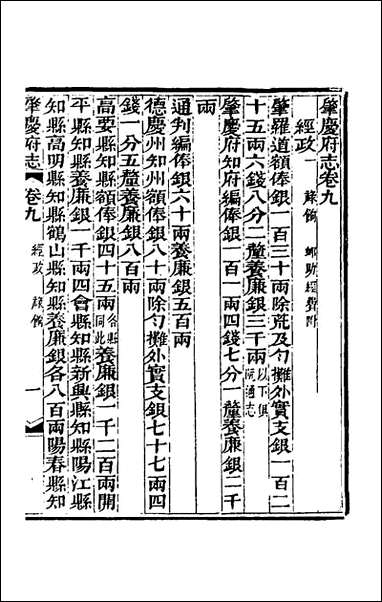 肇慶府志卷九
經政一 祿餉 鄉防經費附
肇羅道額俸銀一百三十兩除荒及勻攤外實支銀一百二
十五兩六錢八分二釐養廉銀三千兩以下俱阮通志
肇慶府知府編俸銀一百一兩四錢七分一釐養廉銀二千
兩
通判編俸銀六十兩養廉銀五百兩
德慶州知州額俸銀八十兩除勻攤外實支銀七十七兩四
錢一分五釐養廉銀八百兩
高要縣知縣額俸銀四十五兩各縣同此養廉銀一千二百兩開
平縣知縣養廉銀一千兩四會縣知縣新興縣知縣陽江縣
知縣高明縣知縣鶴山縣知縣養廉銀各八百兩陽春縣知
肇慶府志 卷九 經政 祿餉 一